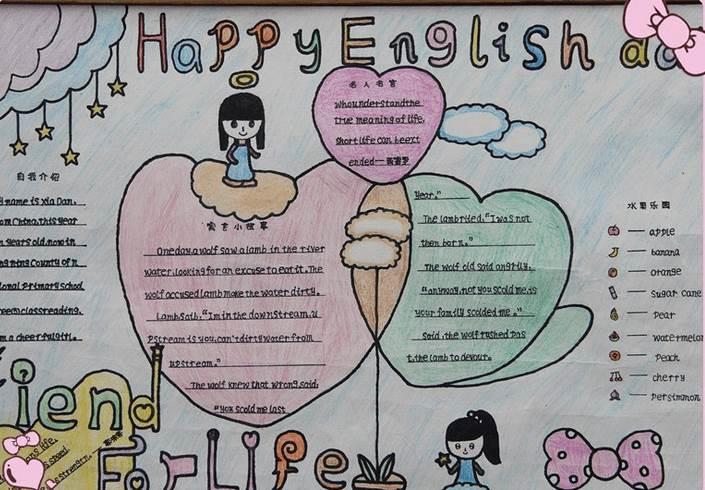 Happy English
名人名言
whounderstandthe
true meaning of life,
short life can beext
ended—西塞罗
自我介绍
name is Xia Dan.
China, this year
years old, now in
County of
Primary school
class reading.
a cheerful girl.
寓言小故事
One day, a wolf saw a lamb in the river
water, looking for an excuse to eat it. The
wolf accused lamb make the water dirty.
Lamb said, "I'm in the downstream, u
pstream is you, can't dirty water from
upstream."
The wolf knew that wrong, said:
"you scold me last
year."
The lamb ryed, "I was not
then born."
The wolf old said angrily,
"anyway, not you scold me, is
your family scolded me."
Said, the wolf rushed pas
t, the lamb to devour.
水果乐园
apple
banana
orange
sugar cane
pear
watermelon
peach
cherry
persimmon
iend
For Life
life,
strength.